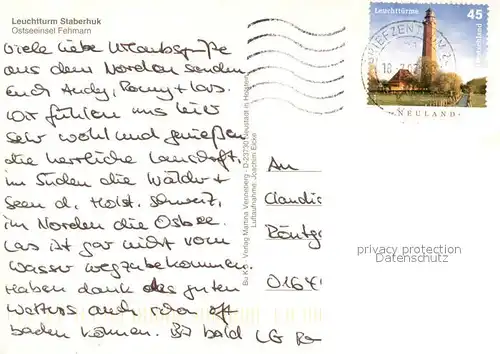 Leuchtturm Staberhuk
Ostseeinsel Fehmarn
Viele liebe Urlaubsgrüße
aus dem Norden senden
Euch Andy, Romy + Lars.
Wir fühlen uns hier
sehr wohl und genießen
die herrliche Landschaft,
im Süden die Wälder +
Seen d. Holst. Schweiz,
im Norden die Ostsee.
Lars ist gar nicht vom
Wasser wegzubekommen.
Haben dank des guten
Wetters auch schon oft
baden können. Bis bald LG
Bu K © · Verlag Martina Venneberg · D-23730 Neustadt in
Luftaufnahme: Joachim
Leuchttürme
45
Deutschland
NEULAND
BRIEFZENTRUM
18
An
Claudi
Röntg
0164
privacy protection
Datenschutz